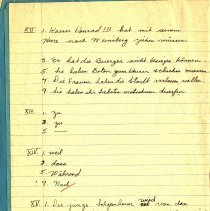 XII 1. Kaiser Konrad III hat mit seinem
Heere nach Weinsberg ziehen müssen.
3. Er hat die Buerger nicht besiegen können.
5. Sie haben Boten zum Kaiser schicken müssen.
7. Die Frauen haben die Stadt verlassen wollen.
9. Sie haben der Schatz mitnehmen duerfen.
XIII 1. zu
3. zu
5.
XIV 1. weil
3. dass
5. Während
7. Nach
XV 1. Der junge wird von dem